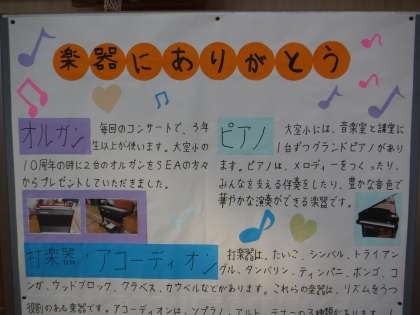 楽器にありがとう
オルガン
毎回のコンサートで、3年
生以上が使います。大空小の
10周年の時に2台のオルガンをSEAの方々
からプレゼントしていただきました。
ピアノ
大空小には、音楽室と講堂に
1台ずつグランドピアノがあり
ます。ピアノは、メロディーをつくったり、
みんなを支える伴奏をしたり、豊かな音色で
華やかな演奏ができる楽器です。
打楽器・アコーディオン
打楽器は、たいこ、シンバル、トライアン
グル、タンバリン、ティンパニ、ボンゴ、コ
ンガ、ウッドブロック、クラベス、カウベルなどがあります。これらの楽器は、リズムをうつ
役割のある楽器です。アコーディオンは、ソプラノ、アルト、テナーの3種類があります。